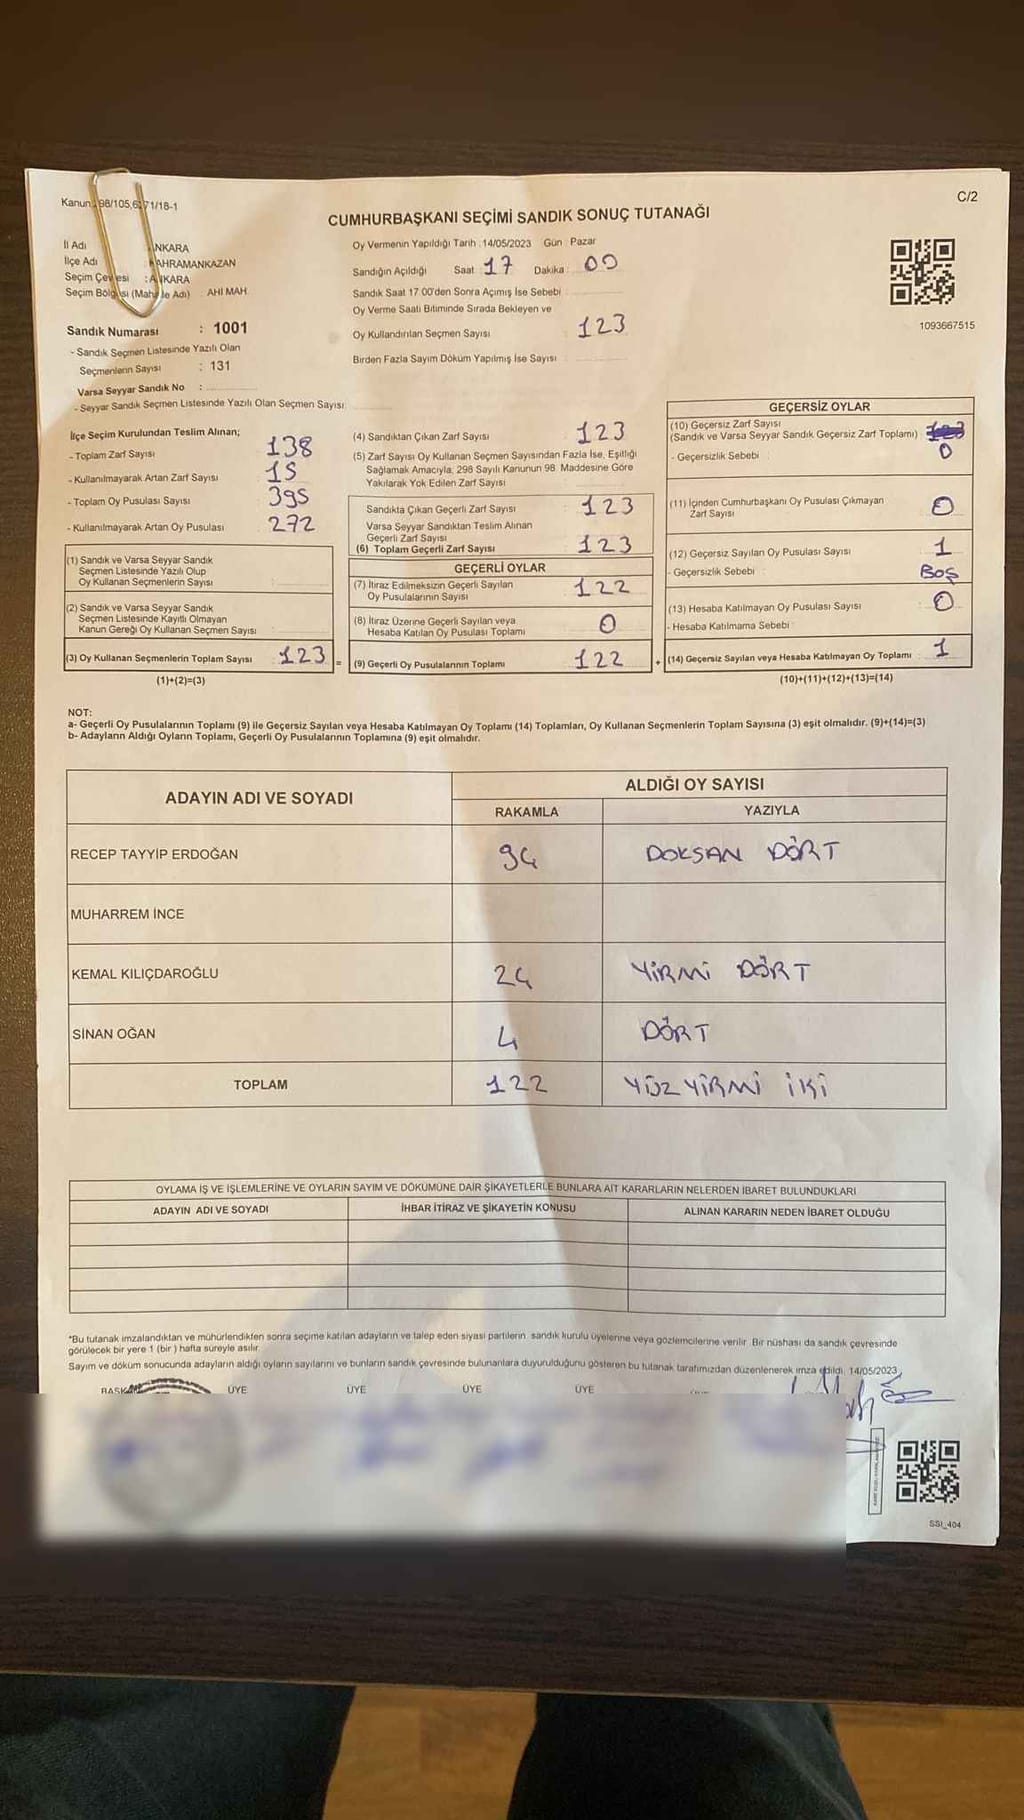 Kanun: 98/105,6271/18-1
C/2
CUMHURBAŞKANI SEÇİMİ SANDIK SONUÇ TUTANAĞI
İl Adı
ANKARA
İlçe Adı
KAHRAMANKAZAN
Seçim Çevresi : ANKARA
Seçim Bölgesi (Mahalle Adı) AHİ MAH.
Sandık Numarası : 1001
- Sandık Seçmen Listesinde Yazılı Olan
Seçmenlerin Sayısı : 131
Varsa Seyyar Sandık No :
- Seyyar Sandık Seçmen Listesinde Yazılı Olan Seçmen Sayısı
Oy Vermenin Yapıldığı Tarih : 14/05/2023 Gün Pazar
Sandığın Açıldığı Saat 17 Dakika : 00
Sandık Saat 17:00'den Sonra Açımış İse Sebebi
Oy Verme Saati Bitiminde Sırada Bekleyen ve
Oy Kullandırılan Seçmen Sayısı 123
Birden Fazla Sayım Döküm Yapılmış İse Sayısı
1093667515
İlçe Seçim Kurulundan Teslim Alınan;
- Toplam Zarf Sayısı 138
- Kullanılmayarak Artan Zarf Sayısı 15
- Toplam Oy Pusulası Sayısı 395
- Kullanılmayarak Artan Oy Pusulası 272
(1) Sandık ve Varsa Seyyar Sandık
Seçmen Listesinde Yazılı Olup
Oy Kullanan Seçmenlerin Sayısı
(2) Sandık ve Varsa Seyyar Sandık
Seçmen Listesinde Kayıtlı Olmayan
Kanun Gereği Oy Kullanan Seçmen Sayısı
(3) Oy Kullanan Seçmenlerin Toplam Sayısı 123 =
(1)+(2)=(3)
(4) Sandıktan Çıkan Zarf Sayısı 123
(5) Zarf Sayısı Oy Kullanan Seçmen Sayısından Fazla İse, Eşitliği
Sağlamak Amacıyla, 298 Sayılı Kanunun 98. Maddesine Göre
Yakılarak Yok Edilen Zarf Sayısı
Sandıkta Çıkan Geçerli Zarf Sayısı 123
Varsa Seyyar Sandıktan Teslim Alınan
Geçerli Zarf Sayısı
(6) Toplam Geçerli Zarf Sayısı 123
GEÇERLİ OYLAR
(7) İtiraz Edilmeksizin Geçerli Sayılan
Oy Pusulalarının Sayısı 122
(8) İtiraz Üzerine Geçerli Sayılan veya
Hesaba Katılan Oy Pusulası Toplamı 0
(9) Geçerli Oy Pusulalarının Toplamı 122 +
GEÇERSİZ OYLAR
(10) Geçersiz Zarf Sayısı
(Sandık ve Varsa Seyyar Sandık Geçersiz Zarf Toplamı) 123
- Geçersizlik Sebebi 0
(11) İçinden Cumhurbaşkanı Oy Pusulası Çıkmayan
Zarf Sayısı 0
(12) Geçersiz Sayılan Oy Pusulası Sayısı 1
- Geçersizlik Sebebi : BOŞ
(13) Hesaba Katılmayan Oy Pusulası Sayısı 0
- Hesaba Katılmama Sebebi :
(14) Geçersiz Sayılan veya Hesaba Katılmayan Oy Toplamı 1
(10)+(11)+(12)+(13)=(14)
NOT:
a- Geçerli Oy Pusulalarının Toplamı (9) ile Geçersiz Sayılan veya Hesaba Katılmayan Oy Toplamı (14) Toplamları, Oy Kullanan Seçmenlerin Toplam Sayısına (3) eşit olmalıdır. (9)+(14)=(3)
b- Adayların Aldığı Oyların Toplamı, Geçerli Oy Pusulalarının Toplamına (9) eşit olmalıdır.
ADAYIN ADI VE SOYADI
ALDIĞI OY SAYISI
RAKAMLA YAZIYLA
RECEP TAYYİP ERDOĞAN 94 DOKSAN DÖRT
MUHARREM İNCE
KEMAL KILIÇDAROĞLU 24 YİRMİ DÖRT
SİNAN OĞAN 4 DÖRT
TOPLAM 122 YÜZ YİRMİ İKİ
OYLAMA İŞ VE İŞLEMLERİNE VE OYLARIN SAYIM VE DÖKÜMÜNE DAİR ŞİKAYETLERLE BUNLARA AİT KARARLARIN NELERDEN İBARET BULUNDUKLARI
ADAYIN ADI VE SOYADI İHBAR İTİRAZ VE ŞİKAYETİN KONUSU ALINAN KARARIN NEDEN İBARET OLDUĞU
*Bu tutanak imzalandıktan ve mühürlendikten sonra seçime katılan adayların ve talep eden siyasi partilerin sandık kurulu üyelerine veya gözlemcilerine verilir. Bir nüshası da sandık çevresinde
görülecek bir yere 1 (bir) hafta süreyle asılır.
Sayım ve döküm sonucunda adayların aldığı oyların sayılarını ve bunların sandık çevresinde bulunanlara duyurulduğunu gösteren bu tutanak tarafımızdan düzenlenerek imza edildi. 14/05/2023
ÜYE ÜYE ÜYE ÜYE
SSI_404